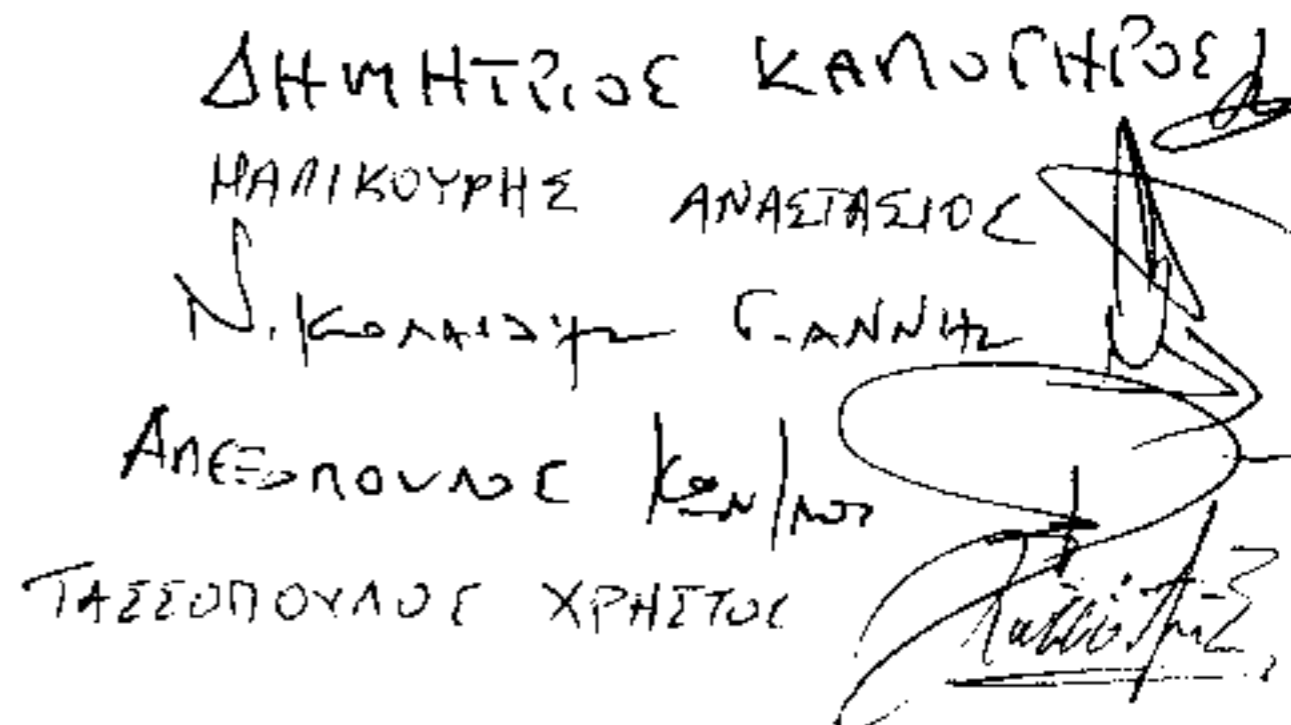 ΔΗΜΗΤΡΙΟΣ ΚΑΛΟΓΗΡΟΣ
ΜΑΛΙΚΟΥΡΗΣ ΑΝΑΣΤΑΣΙΟΣ
ΓΙΑΝΝΗΣ
ΑΛΕΞΟΠΟΥΛΟΣ ΚΩΝ/ΝΟΣ
ΤΑΣΣΟΠΟΥΛΟΣ ΧΡΗΣΤΟΣ